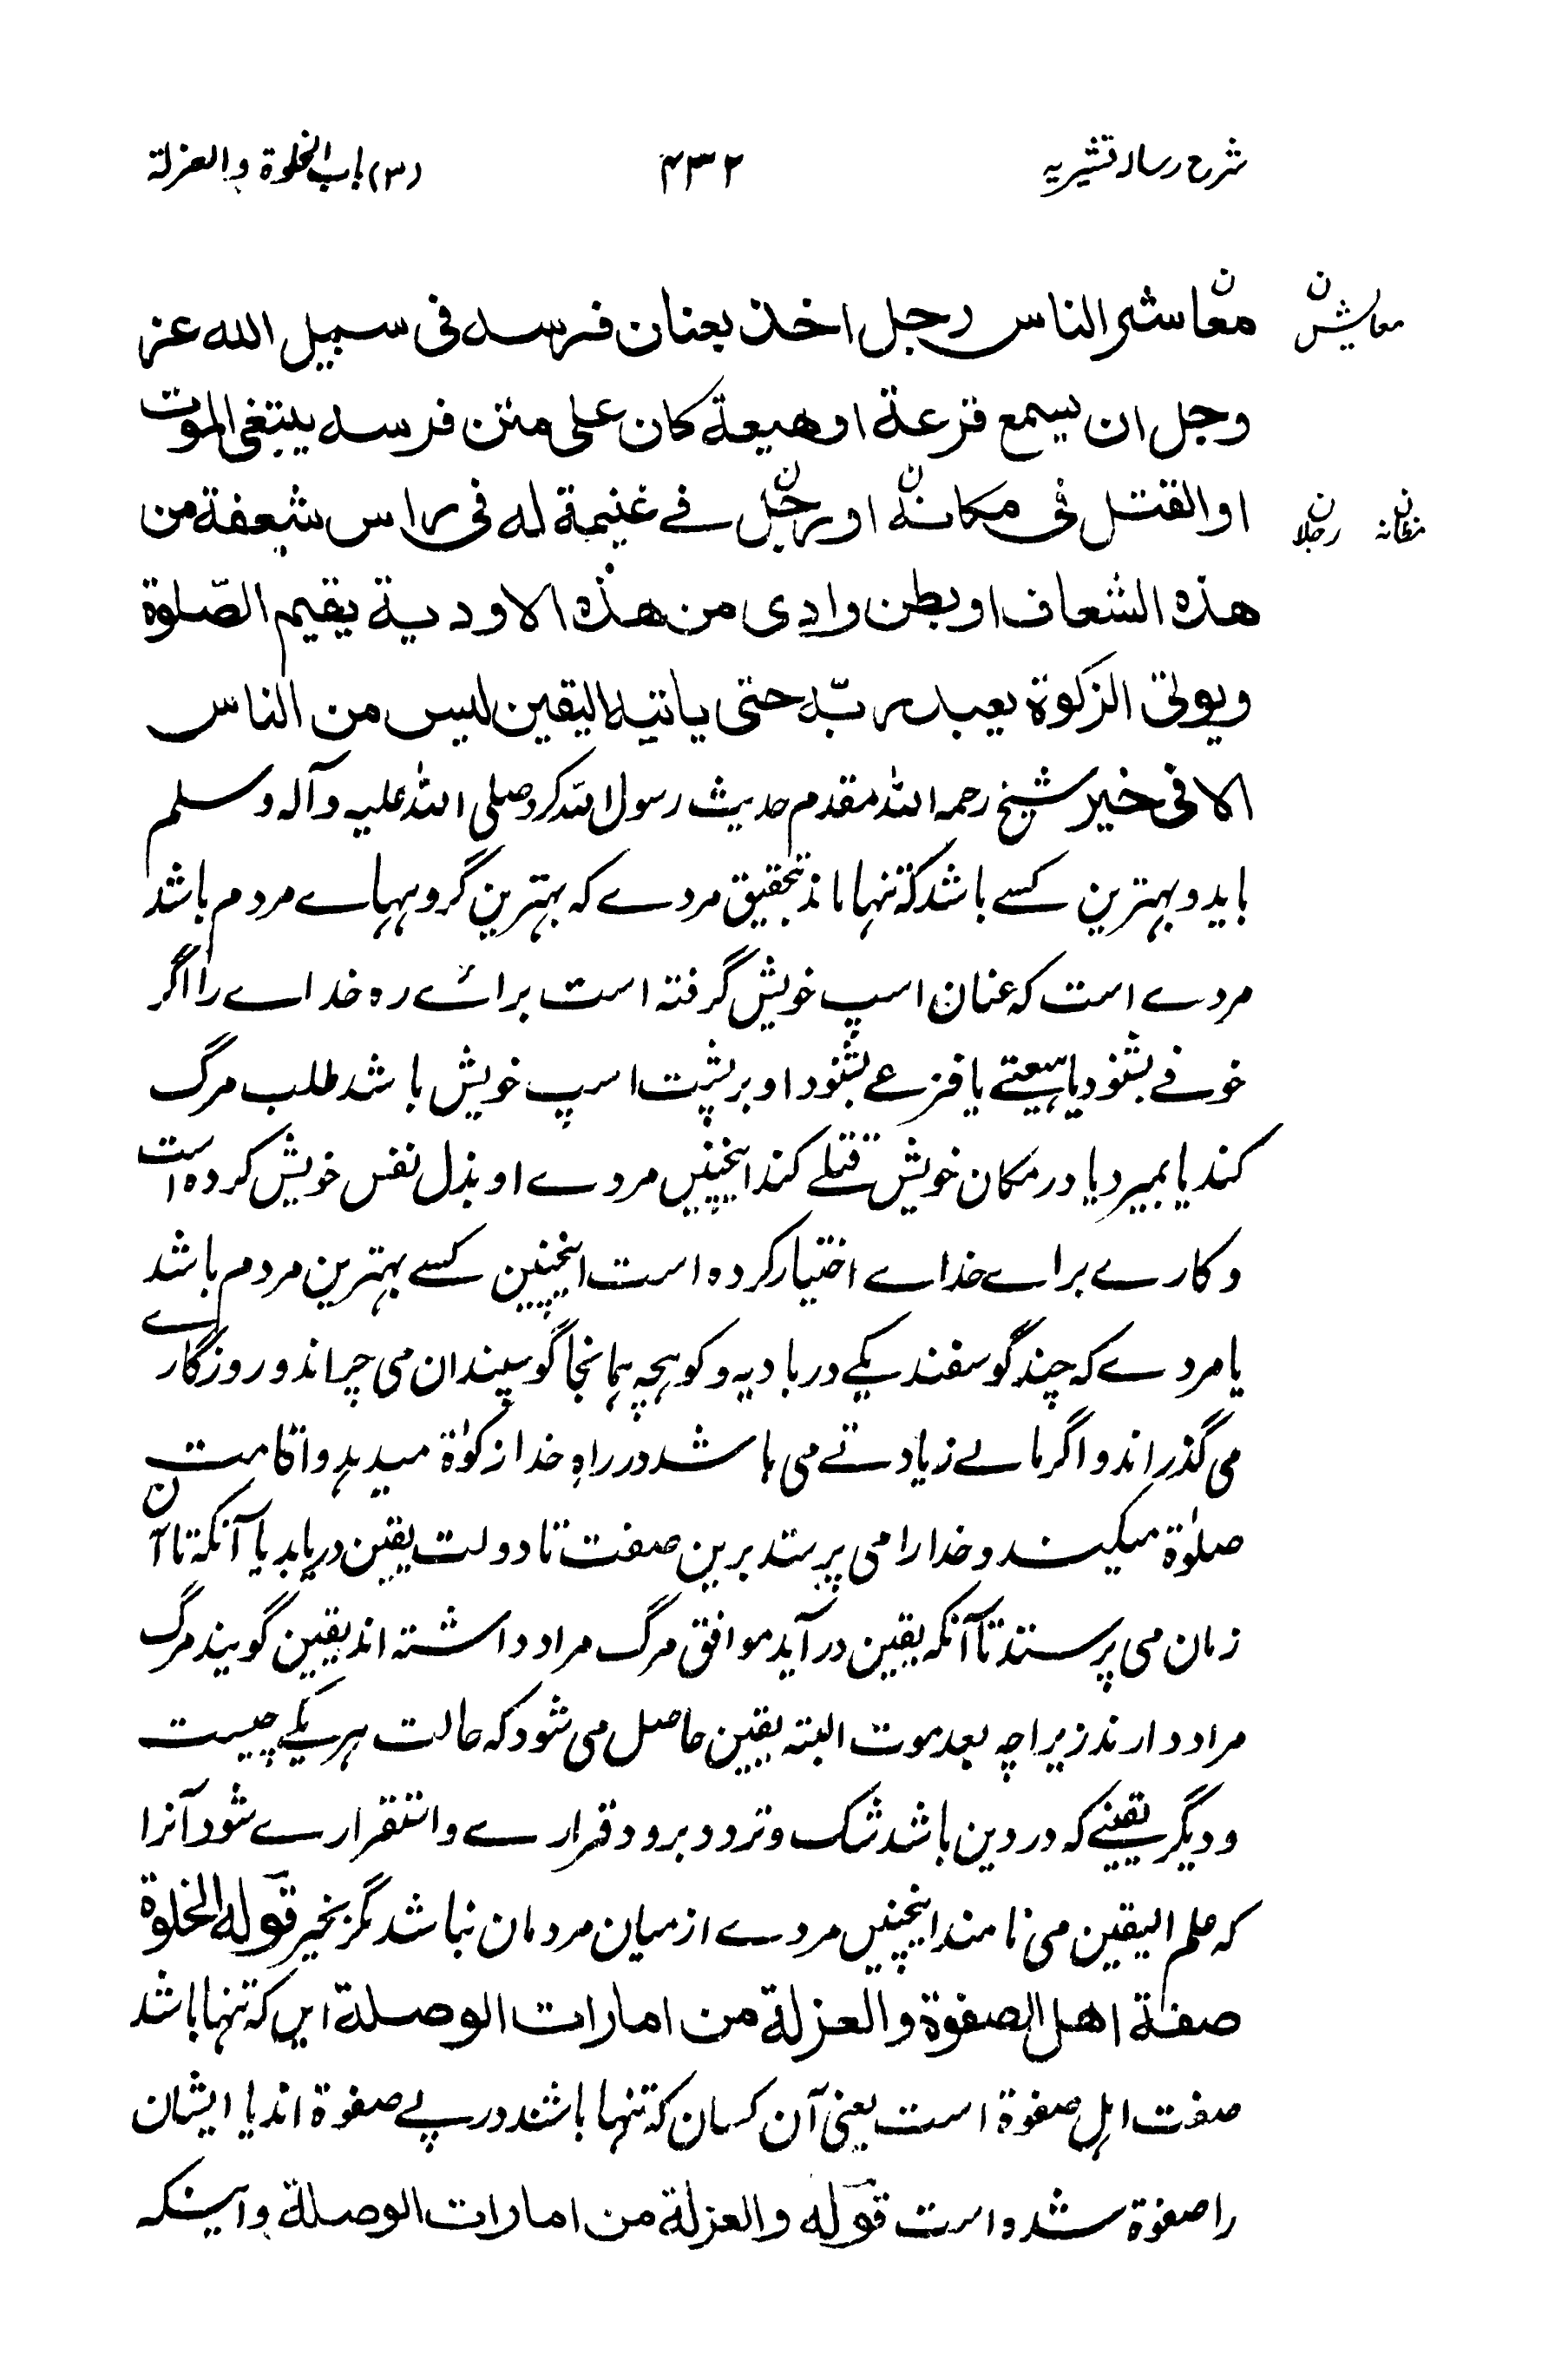 شرح رساله قشیریه ۴۳۲ (۳) باب الخلوة والعزلة
معاشر الناس رجل اخذ بعنان فرسه فی سبیل الله عز
معایش ن
وجل ان یسمع فزعة او هیعة کان علی متن فرسه یبتغی الموت
او القتل فی مکانه او رجل فے غنیمة له فی راس شعفة من
مظانه ن رجلا ن
هذه الشعاف او بطن وادی من هذه الاودیة یقیم الصّلوة
ویوتی الزکوة یعبد ربّه حتی یاتیه الیقین لیس من الناس
الا فی خیر شیخ رحمه الله مقدم حدیث رسول الله کرد صلی الله علیه وآله وسلم
باید و بهترین کسے باشد که تنها ماند بتحقیق مردے که بهترین گروهہاے مردم باشد
مردے است که عنان اسپ خویش گرفته است برائے ره خداے را اگر
خوفے بشنود یا هیعتے یا فزعے بشنود او بر پشت اسپ خویش باشد طلب مرگ
کند یا بمیرد یا در مکان خویش قتلے کند اینچنین مردے او بذل نفس خویش کرده است
و کارے براے خداے اختیار کرده است اینچنین کسے بهترین مردم باشد
یا مردے که چند گوسفند یکے در بادیه و کوهچه همانجا گوسپندان می چراند و روزگارے
می گذراند و اگر مالے زیادتے می باشد در راهِ خدا زکوٰة میدهد و اقامت
صلوٰة میکیند و خدا را می پرستد برین صفت تا دولت یقین دریابد یا آنکه تا آن
زمان می پرستند تا آنکه یقین در آید موافق مرگ مراد داشته اند یقین گویند مرگ
مراد دارند زیراچه بعد موت البته یقین حاصل می شود که حالت هر یکے چیست
و دیگر یقینے که در دین باشد شک و تردد برود قرارے و استقرارے شود آنرا
که علم الیقین می نامند اینچنین مردے از میان مردمان نباشد مگر بخیر قوله الخلوة
صفة اهل الصفوة والعزلة من امارات الوصلة این که تنها باشد
صفت اهل صفوة است یعنی آن کسان که تنها باشند در پے صفوة اند یا ایشان
را صفوة شده است قوله والعزلة من امارات الوصلة و اینکه